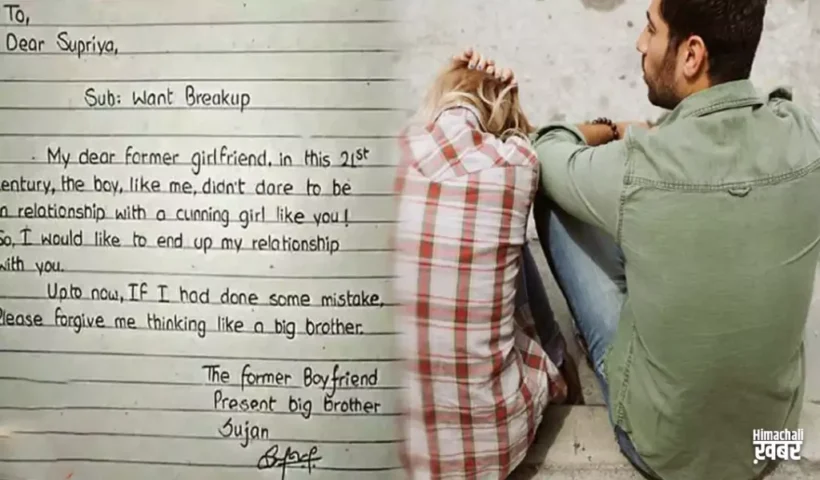 To,
Dear Supriya,
Sub: Want Breakup
My dear former girlfriend, in this 21st
entury, the boy, like me, didn't dare to be
n relationship with a cunning girl like you!
So, I would like to end up my relationship
with you.
Upto now, IF I had done some mistake,
Please forgive me thinking like a big brother.
The former Boyfriend
Present big brother
Sujan
Himachali
ख़बर